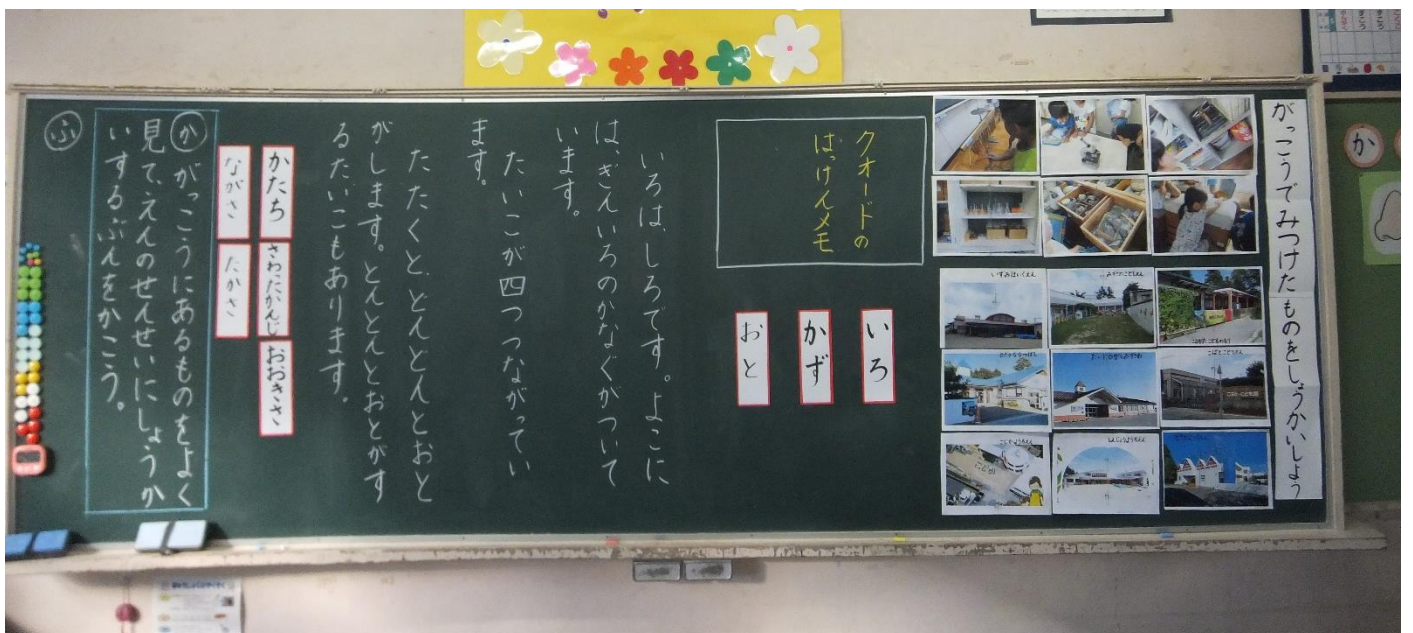 がっこうでみつけたものをしょうかいしよう
クオードの
はっけんメモ
いろ
かず
おと
いろは、しろです。よこに
は、ぎんいろのかなぐがついて
います。
たいこが四つつながってい
ます。
たたくと、とんとんとんとおと
がします。とんとんとんとおとがす
るたいこもあります。
かたち
さわったかんじ
おおきさ
ながさ
たかさ
か がっこうにあるものをよく
見て、えんのせんせいにしょうか
いするぶんをかこう。
ふ
か